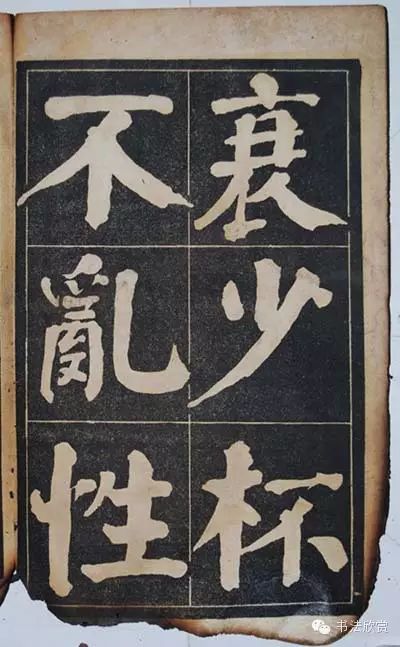 衰少杯
不亂性
书法欣赏